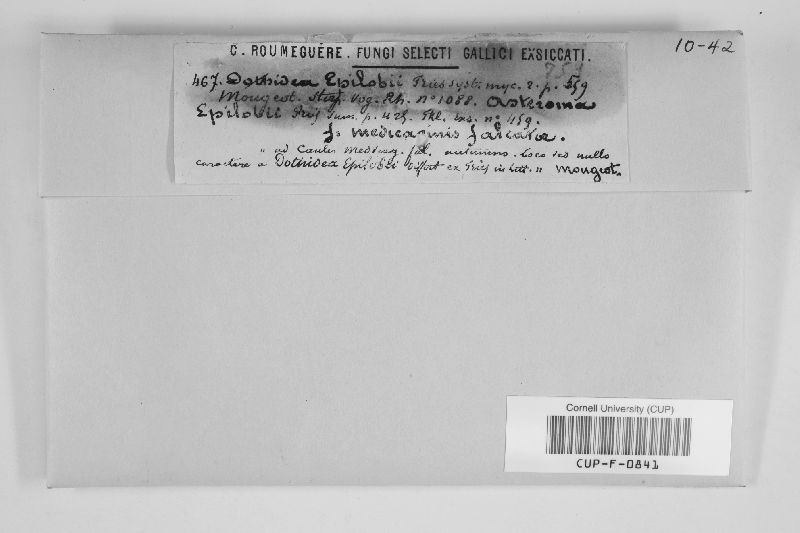 C. ROUMEGUÈRE. FUNGI SELECTI GALLICI EXSICCATI.
10-42
467. Dothidea Epilobii Fries syst. myc. 2. p. 559
Mougeot. Stirp. Vog. Rh. n° 1088. Asteroma
Epilobii Fries Sum. p. 425. Fkl. exs. n° 459.
f. medicaginis falcatae.
" ad Caules Medicag. fal. autumno. loco sed nullo
caractere a Dothidea Epilobii differt ex Fries in litt. " Mougeot.
Cornell University (CUP)
CUP-F-0841